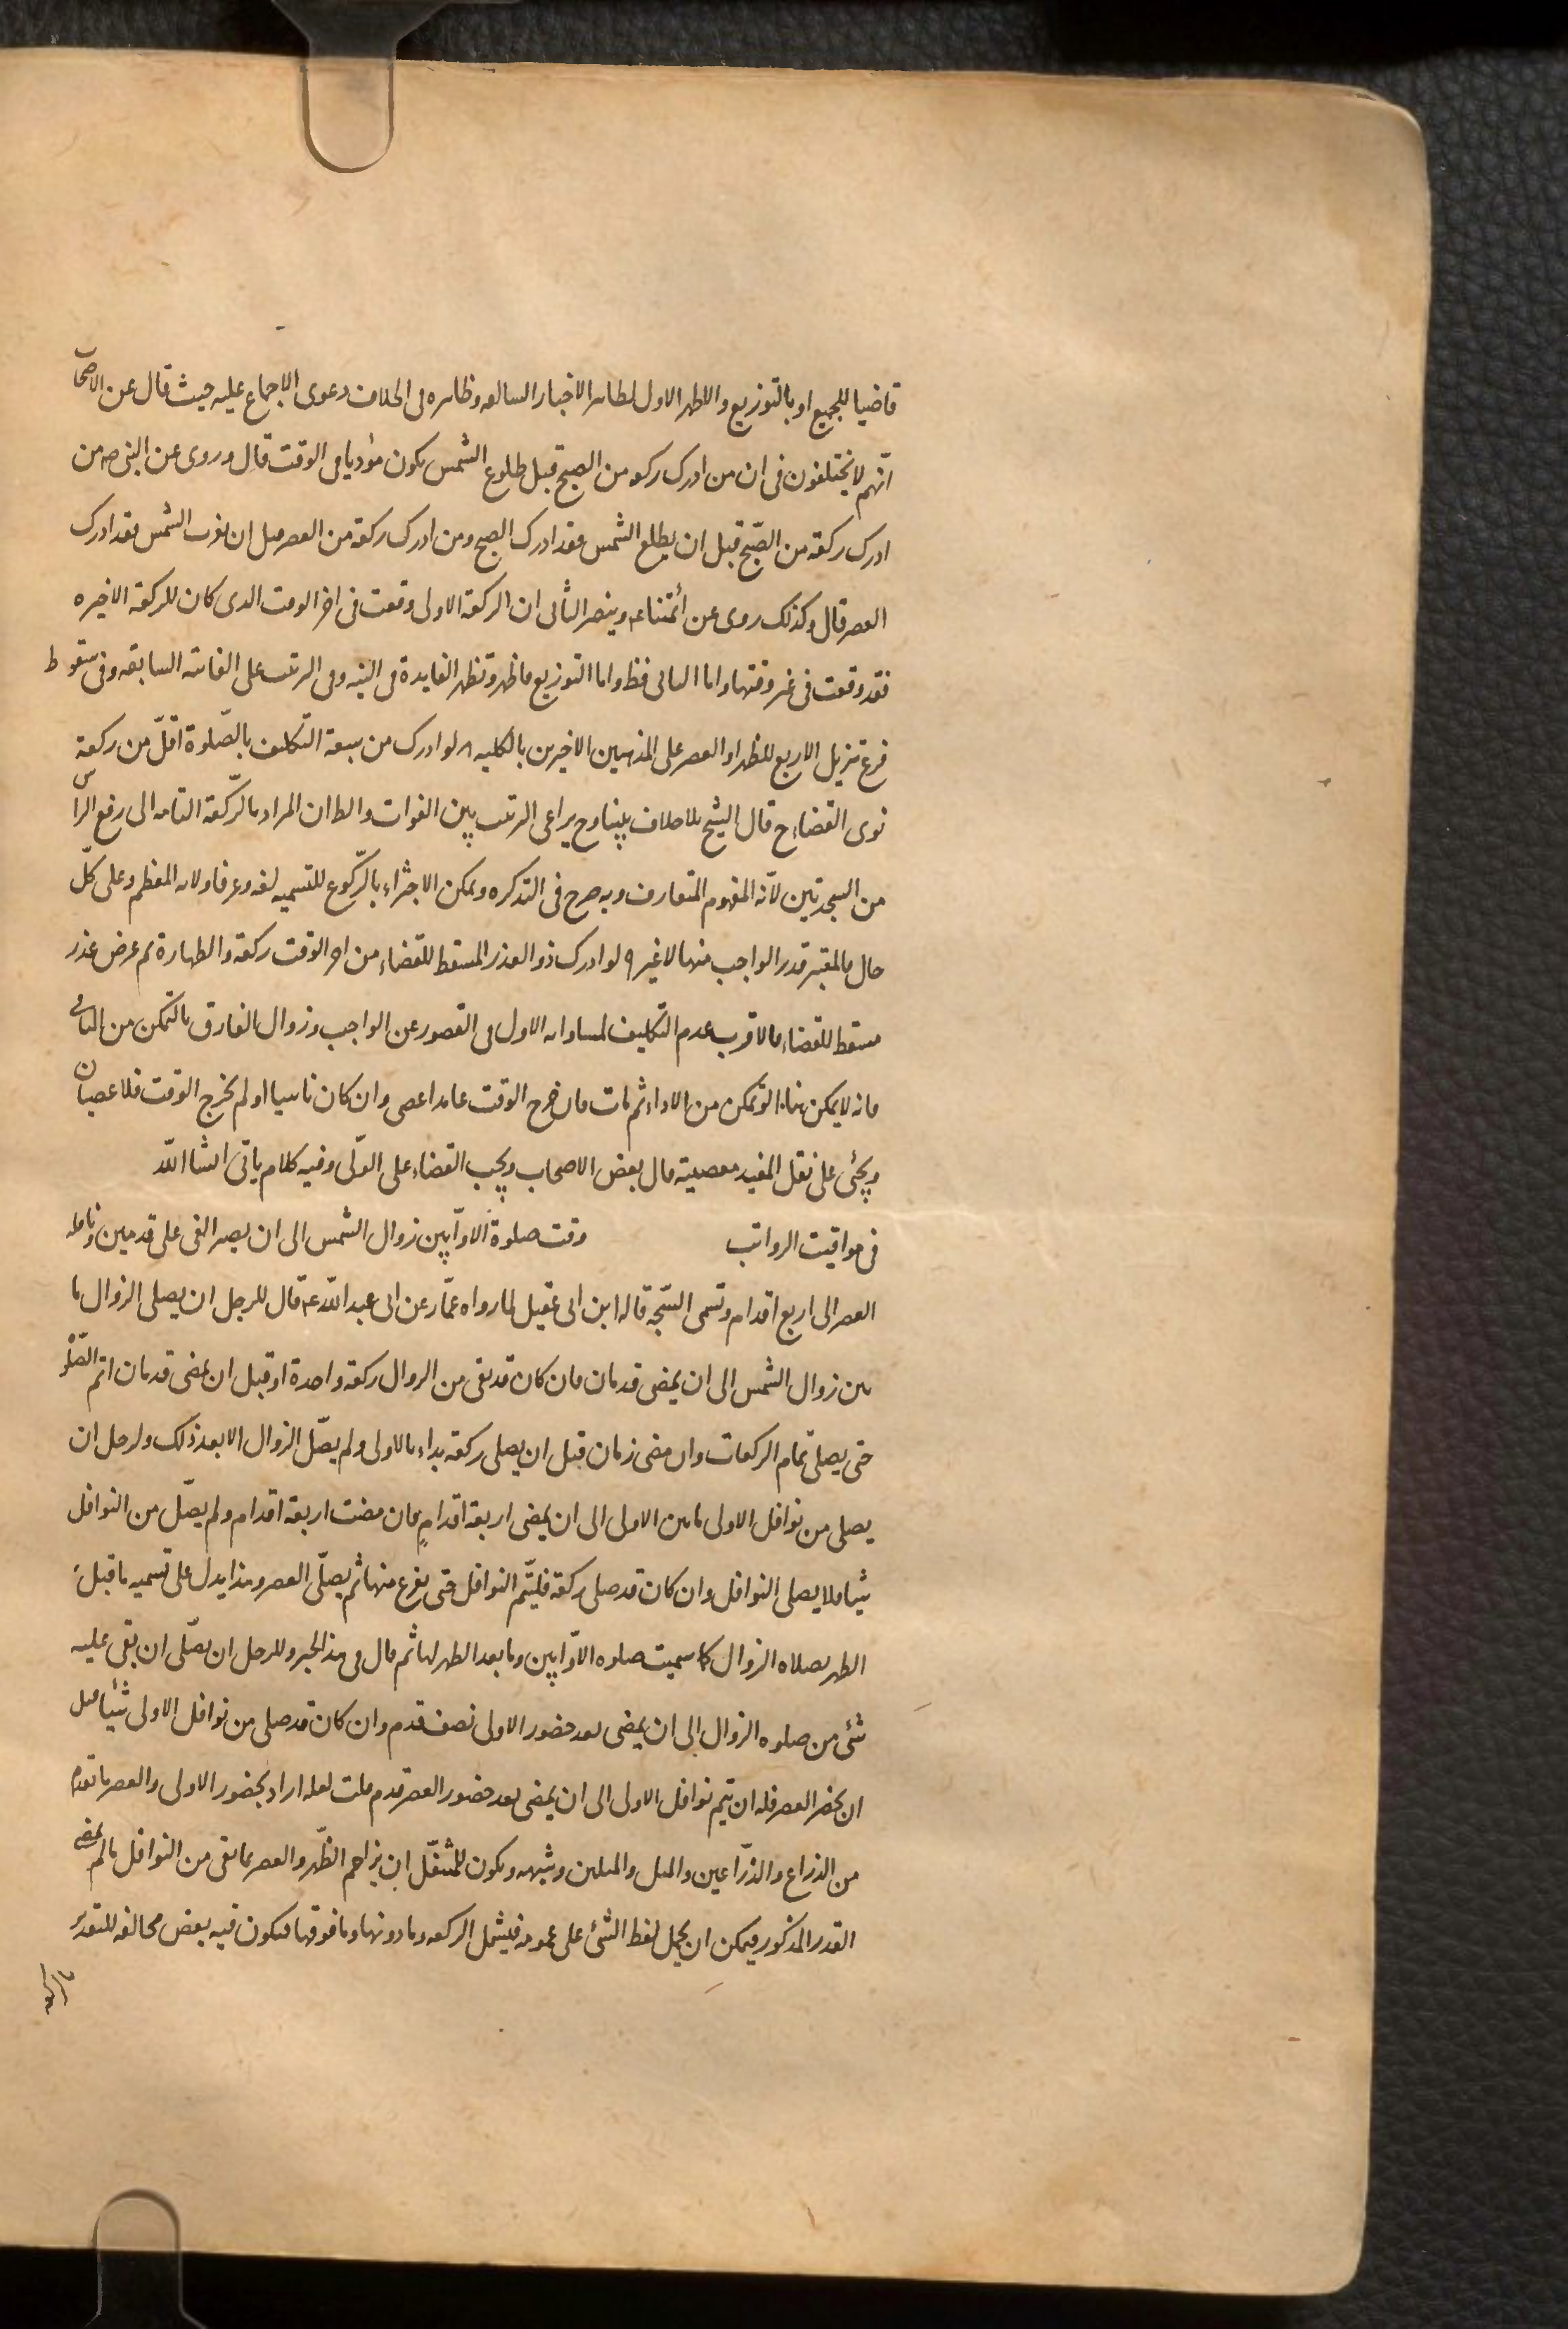 قاضيا للجميع او بالتوزيع والاظهر الاول لظاهر الاخبار السالفه وظاهره فى الخلاف دعوى الاجماع عليه حيث قال عن الاصحاب
انّهم لا يختلفون فى ان من ادرك ركعه من الصبح قبل طلوع الشمس يكون مؤديا فى الوقت قال وروى عن النبى صه من
ادرك ركعة من الصّبح قبل ان يطلع الشمس فقد ادرك الصبح ومن ادرك ركعة من العصر قبل ان يغرب الشمس فقد ادرك
العصر قال وكذلك روى عن ائمّتنا عم وينصر الثانى ان الركعة الاولى وقعت فى اخر الوقت الذى كان للركعة الاخيره
فقد وقعت فى غير وقتها واما الثانى فظ واما التوزيع فاظهر وتظهر الفايدة فى النيه وفى الترتيب على الفائته السابقه وفى سقوط
فرع تنزيل الاربع للظهر او العصر على المذهبين الاخيرين بالكليه ٨ لو ادرك من سعة التكليف بالصّلوة اقلّ من ركعة
نوى القضاء ح قال الشيخ بلا خلاف بيننا وح يراعى الترتيب بين الفوات والظ ان المراد بالرّكعة التامه الى رفع الراس
من السجدتين لانّه المفهوم المتعارف وبه صرح فى التذكره ويمكن الاجتزاء بالرّكوع للتسميه لغه وعرفا ولانه المعظم وعلى كلّ
حال فالمعتبر قدر الواجب منها لا غير ٩ لو ادرك ذو العذر المسقط للقضاء من اخر الوقت ركعة والطهارة ثم عرض عذر
مسقط للقضاء فالاقرب عدم التكليف لمساواته الاول فى القصور عن الواجب وزوال الفارق بالتمكن من الثانى
فانه لا يمكن هنا ١٠ لو تمكن من الاداء ثم مات فان خرج الوقت عامدا عصى وان كان ناسيا او لم يخرج الوقت فلا عصيان
ويجئ على نقل المفيد معصيته قال بعض الاصحاب ويجب القضاء على الولّى وفيه كلام ياتى انشا اللّه
فى مواقيت الرواتب وقت صلوة الاوّابين زوال الشمس الى ان يصير الفى على قدمين ونافله
العصر الى اربع اقدام وتسمى السّبحه قاله ابن ابى عقيل لما رواه عمّار عن ابى عبد اللّه عم قال للرجل ان يصلى الزوال ما
بين زوال الشمس الى ان يمضى قدمان فان كان قد بقى من الزوال ركعة واحدة او قبل ان يمضى قدمان اتم الصّلوة
حتى يصلى تمام الركعات وان مضى زمان قبل ان يصلى ركعة بداء بالاولى ولم يصّل الزوال الا بعد ذلك ولرجل ان
يصلى من نوافل الاولى ما بين الاولى الى ان يمضى اربعة اقدام فان مضت اربعة اقدام ولم يصّل من النوافل
شيئا فلا يصلى النوافل وان كان قد صلى ركعة فليتّم النوافل حتى يفرغ منها ثم يصلّى العصر وهذا يدل على تسميه ما قبل
الظهر بصلاه الزوال كما سميت صلوه الاوّابين وما بعد الظهر لها ثم قال فى هذا الخبر وللرجل ان يصلّى ان بقى عليه
شئ من صلوه الزوال الى ان يمضى بعد حضور الاولى نصف قدم وان كان قد صلى من نوافل الاولى شيئا قبل
ان يحضر العصر فله ان يتم نوافل الاولى الى ان يمضى بعد حضور العصر قدم قلت لعله اراد بحضور الاولى والعصر ما تقدم
من الذراع والذرّاعين والمثل والمثلين وشبهه ويكون للمتنفّل ان يزاحم الظّهر والعصر ما بقى من النوافل ما لم يمض
القدر المذكور فيمكن ان يحمل لفظ الشئ على عمومه فيشمل الركعه وما دونها وما فوقها فيكون فيه بعض مخالفه للتقدير